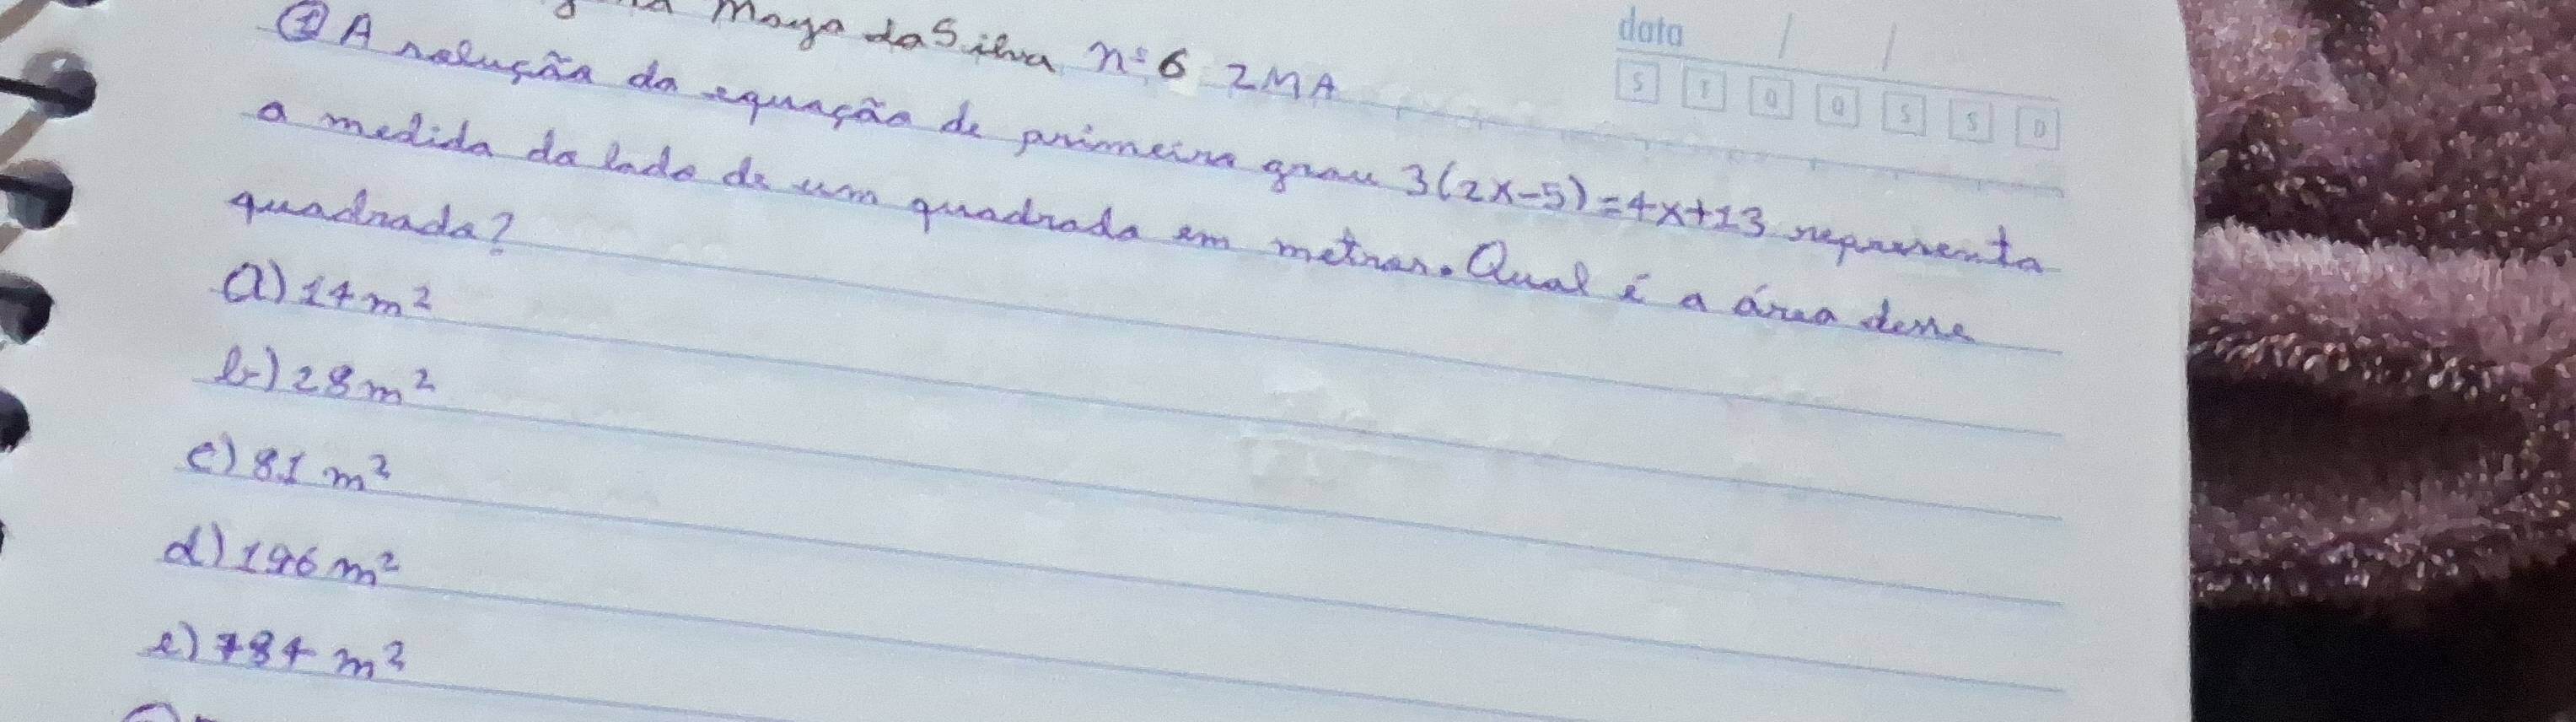 Maya da Silva nº 6 2MA
data / /
S T Q Q S S D
① A solução da equação de primeiro grau 3(2x-5)=4x+13 representa
a medida do lado de um quadrado em metros. Qual é a área desse
quadrado?
a) 14 m²
b) 28 m²
c) 81 m²
d) 196 m²
e) 784 m²